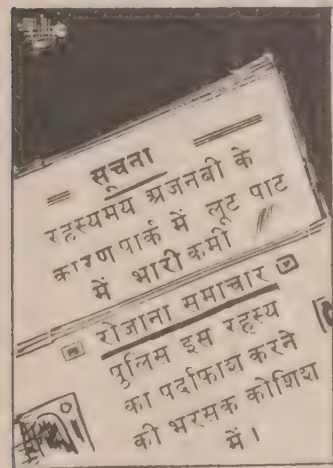 सूचना
रहस्यमय अजनबी के
कारण पार्क में लूट पाट
में भारी कमी
रोजाना समाचार
पुलिस इस रहस्य
का पर्दाफाश करने
की भरसक कोशिश
में।